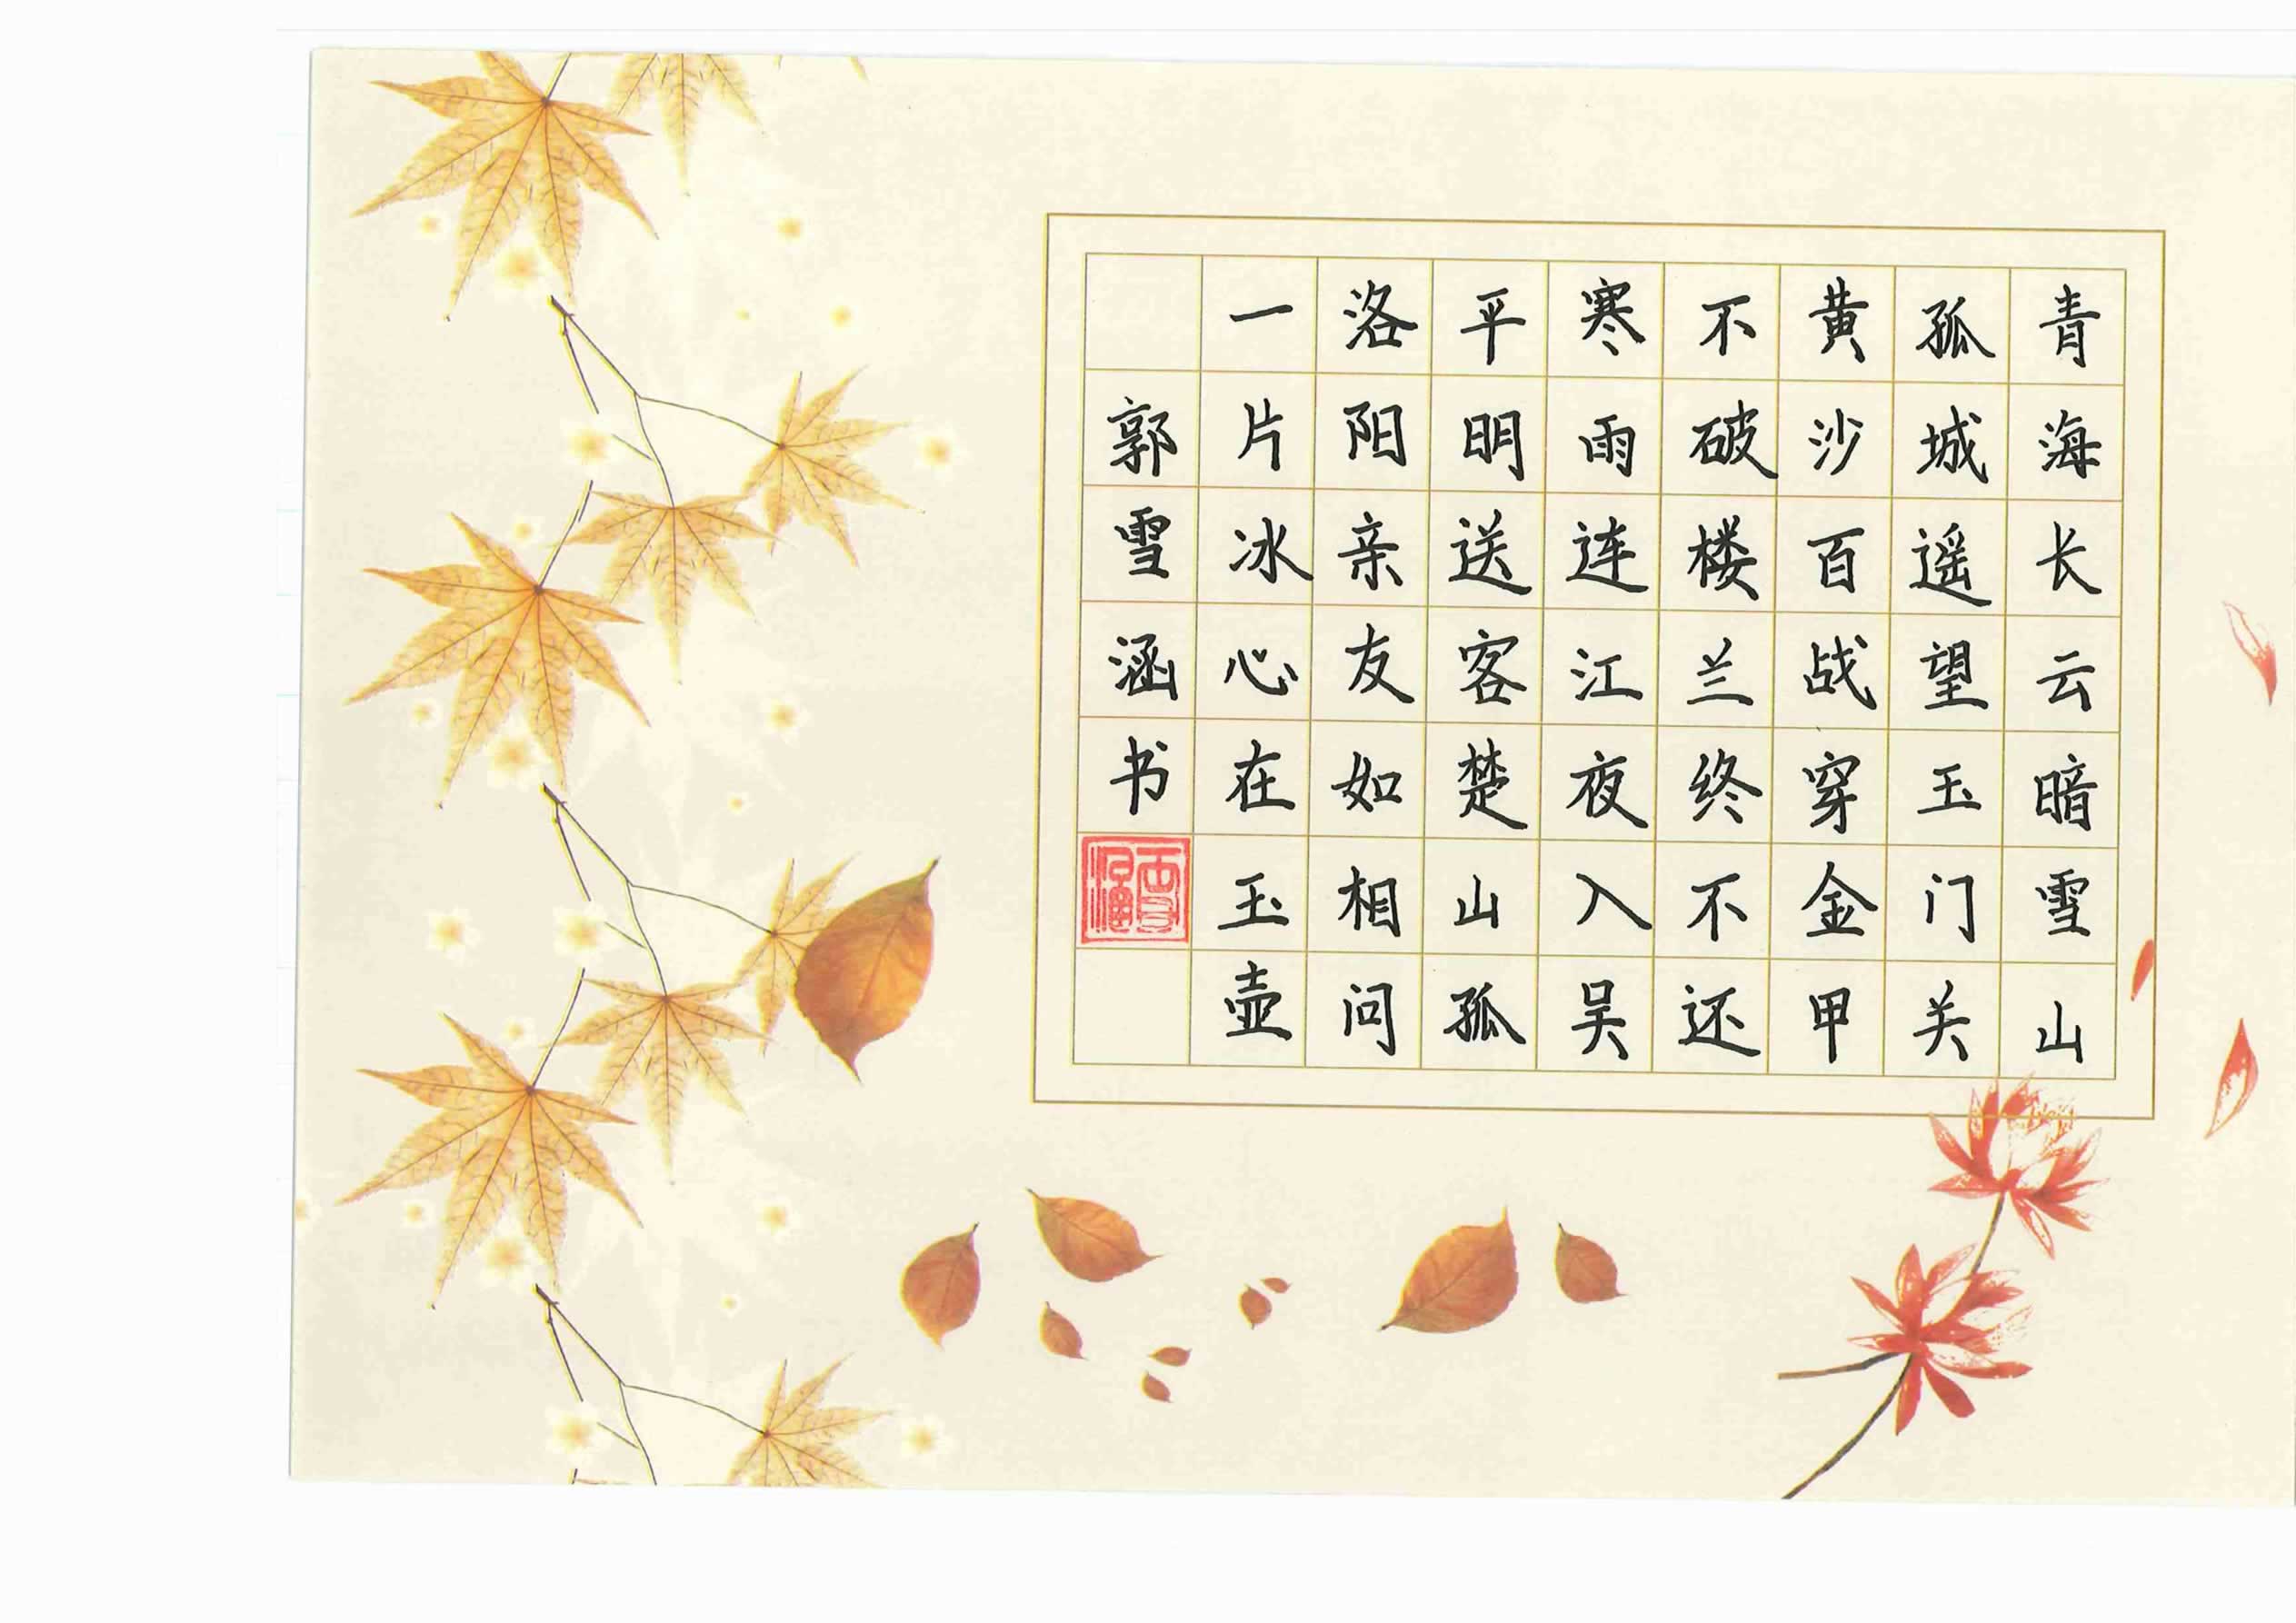 青海长云暗雪山
孤城遥望玉门关
黄沙百战穿金甲
不破楼兰终不还
寒雨连江夜入吴
平明送客楚山孤
洛阳亲友如相问
一片冰心在玉壶
郭雪涵书
雪涵